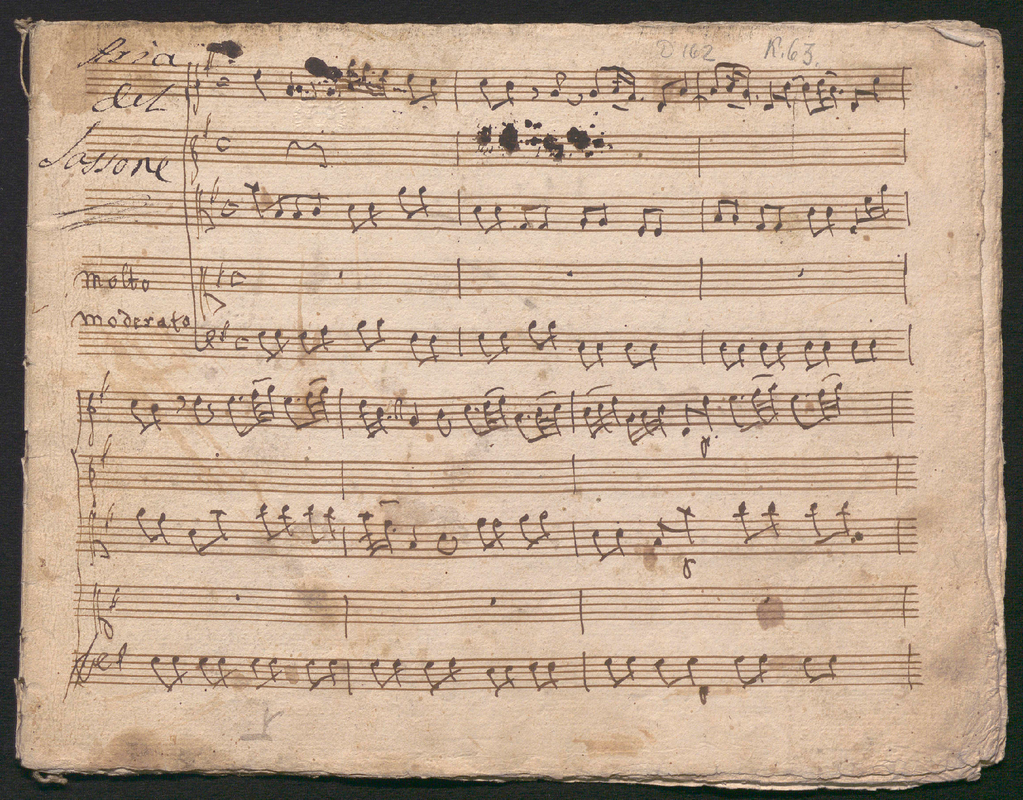 Aria
D 162 R.63.
del
Sassone
Molto
Moderato